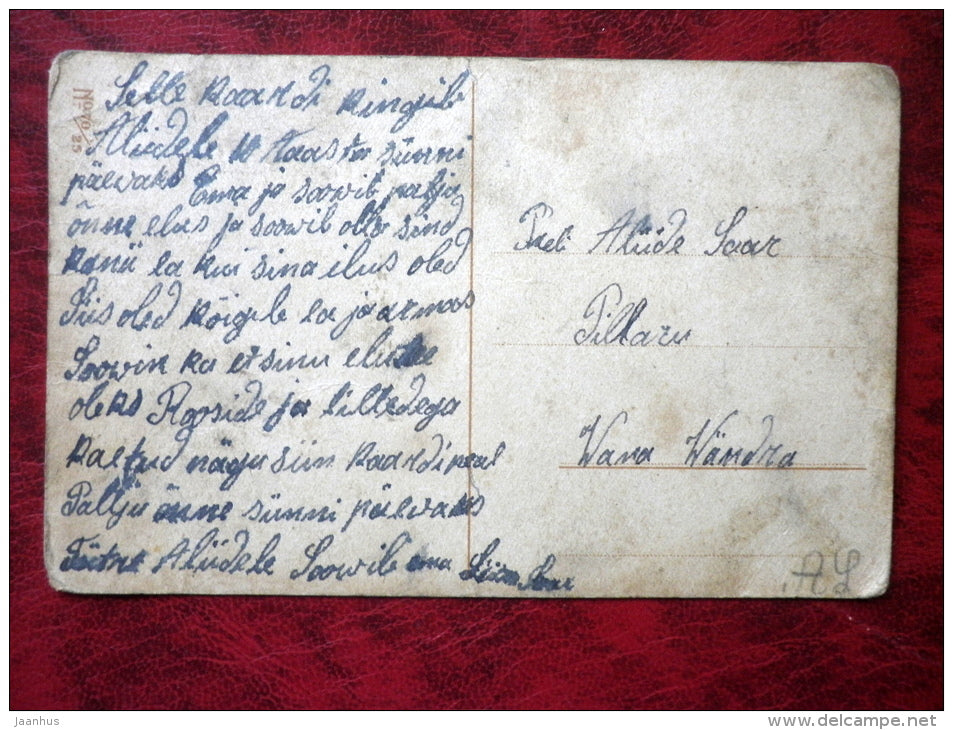 Selle kaardi kingib
Aliidele 10 Aasta sünni
päevaks Ema ja soovib palju
õnne elus ja soowib olla sind
ka nii ea kui sina ilus oled
Siis oled kõigile ea ja armas
Soowin ka et sinu elutee
oleks Rooside ja lilledega
kaetud nagu siin kaardi peal
Palju õnne sünni päewaks
Tütre Aliidele Soowib ema Liisa Saar
Prel. Aliide Saar
Pillaru
Wana Wändra
AL
NOYO
23
Jaanhus
www.delcampe.net